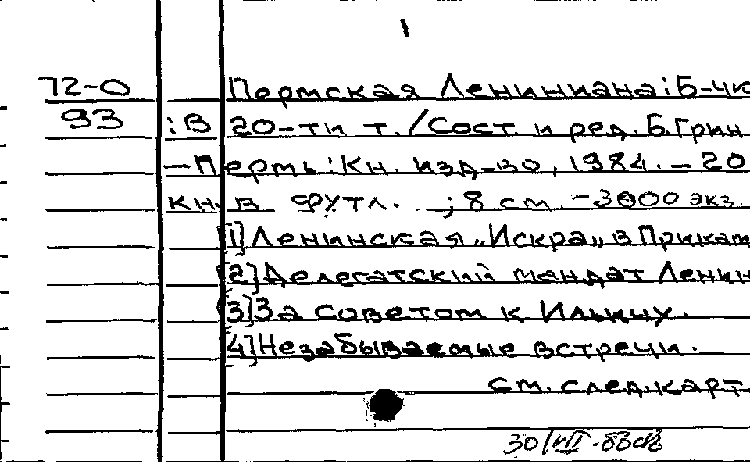 1
72-0 Пермская Лениниана: Б-чка
93 : В 20-ти т./Сост и ред. Б. Грин
—Пермь: Кн. изд-во, 1984. — 20
кн. в футл. ; 8 см. — 3000 экз.
[1] Ленинская „Искра„ в Прикам
[2] Делегатский мандат Ленин
[3] За советом к Ильичу.
[4] Незабываемые встречи.
см. след. карт
30/VII